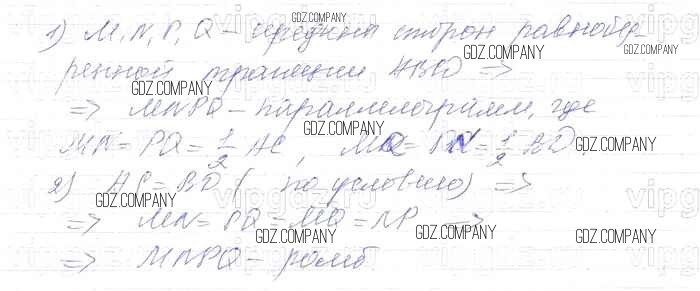 1) M, N, P, Q – середины сторон равнобед-
ренной трапеции ABCD ⇒
⇒ MNPQ – параллелограмм, где
MN = PQ = 1/2 AC, MQ = PN = 1/2 BD
2) AC = BD (по условию) ⇒
⇒ MN = PQ = MQ = NP ⇒
⇒ MNPQ – ромб
GDZ.COMPANY
GDZ.COMPANY
GDZ.COMPANY
GDZ.COMPANY
GDZ.COMPANY
GDZ.COMPANY
GDZ.COMPANY
GDZ.COMPANY
GDZ.COMPANY